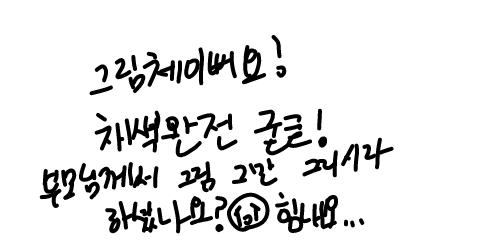 그림체이뻐요!
채색완전 굳굳!
부모님께서 그림 그만 그리시라
하셨나요? 힘내요...